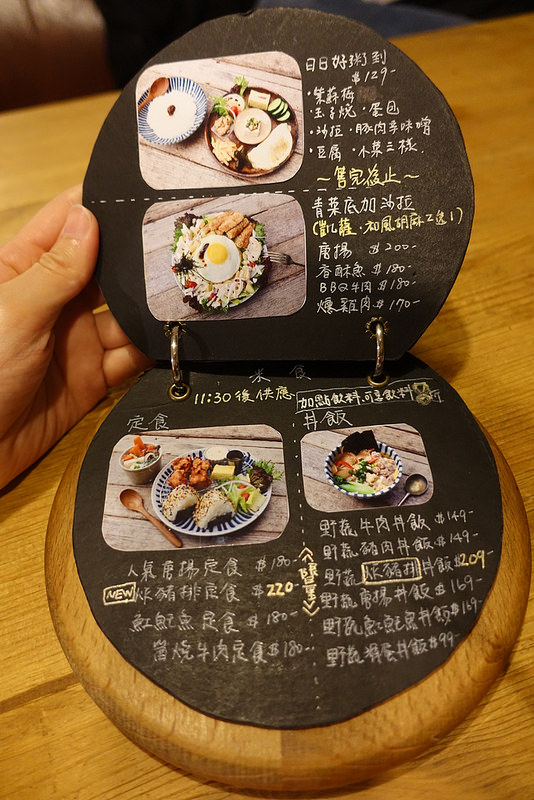 日日好粥到
$129-
・紫蘇梅
・玉子燒・蛋包
・沙拉・豚肉辛味噌
・豆腐・小菜三樣.
～售完為止～
青菜底加沙拉
(凱薩・和風胡麻2選1)
唐揚 $200-
香酥魚 $180-
BBQ牛肉 $180-
燻雞肉 $170-
米食
11:30後供應
加點飲料.可享飲料折
定食
丼飯
人氣唐揚定食 $180-
NEW 炸豬排定食 $220-
魟魠魚定食 $180-
當燒牛肉定食 $180-
《隱量》
野蔬牛肉丼飯 $149-
野蔬豬肉丼飯 $149-
野蔬炸豬排丼飯 $209-
野蔬唐揚丼飯 $169-
野蔬魚丼飯 $169-
野蔬滑蛋丼飯 $99-